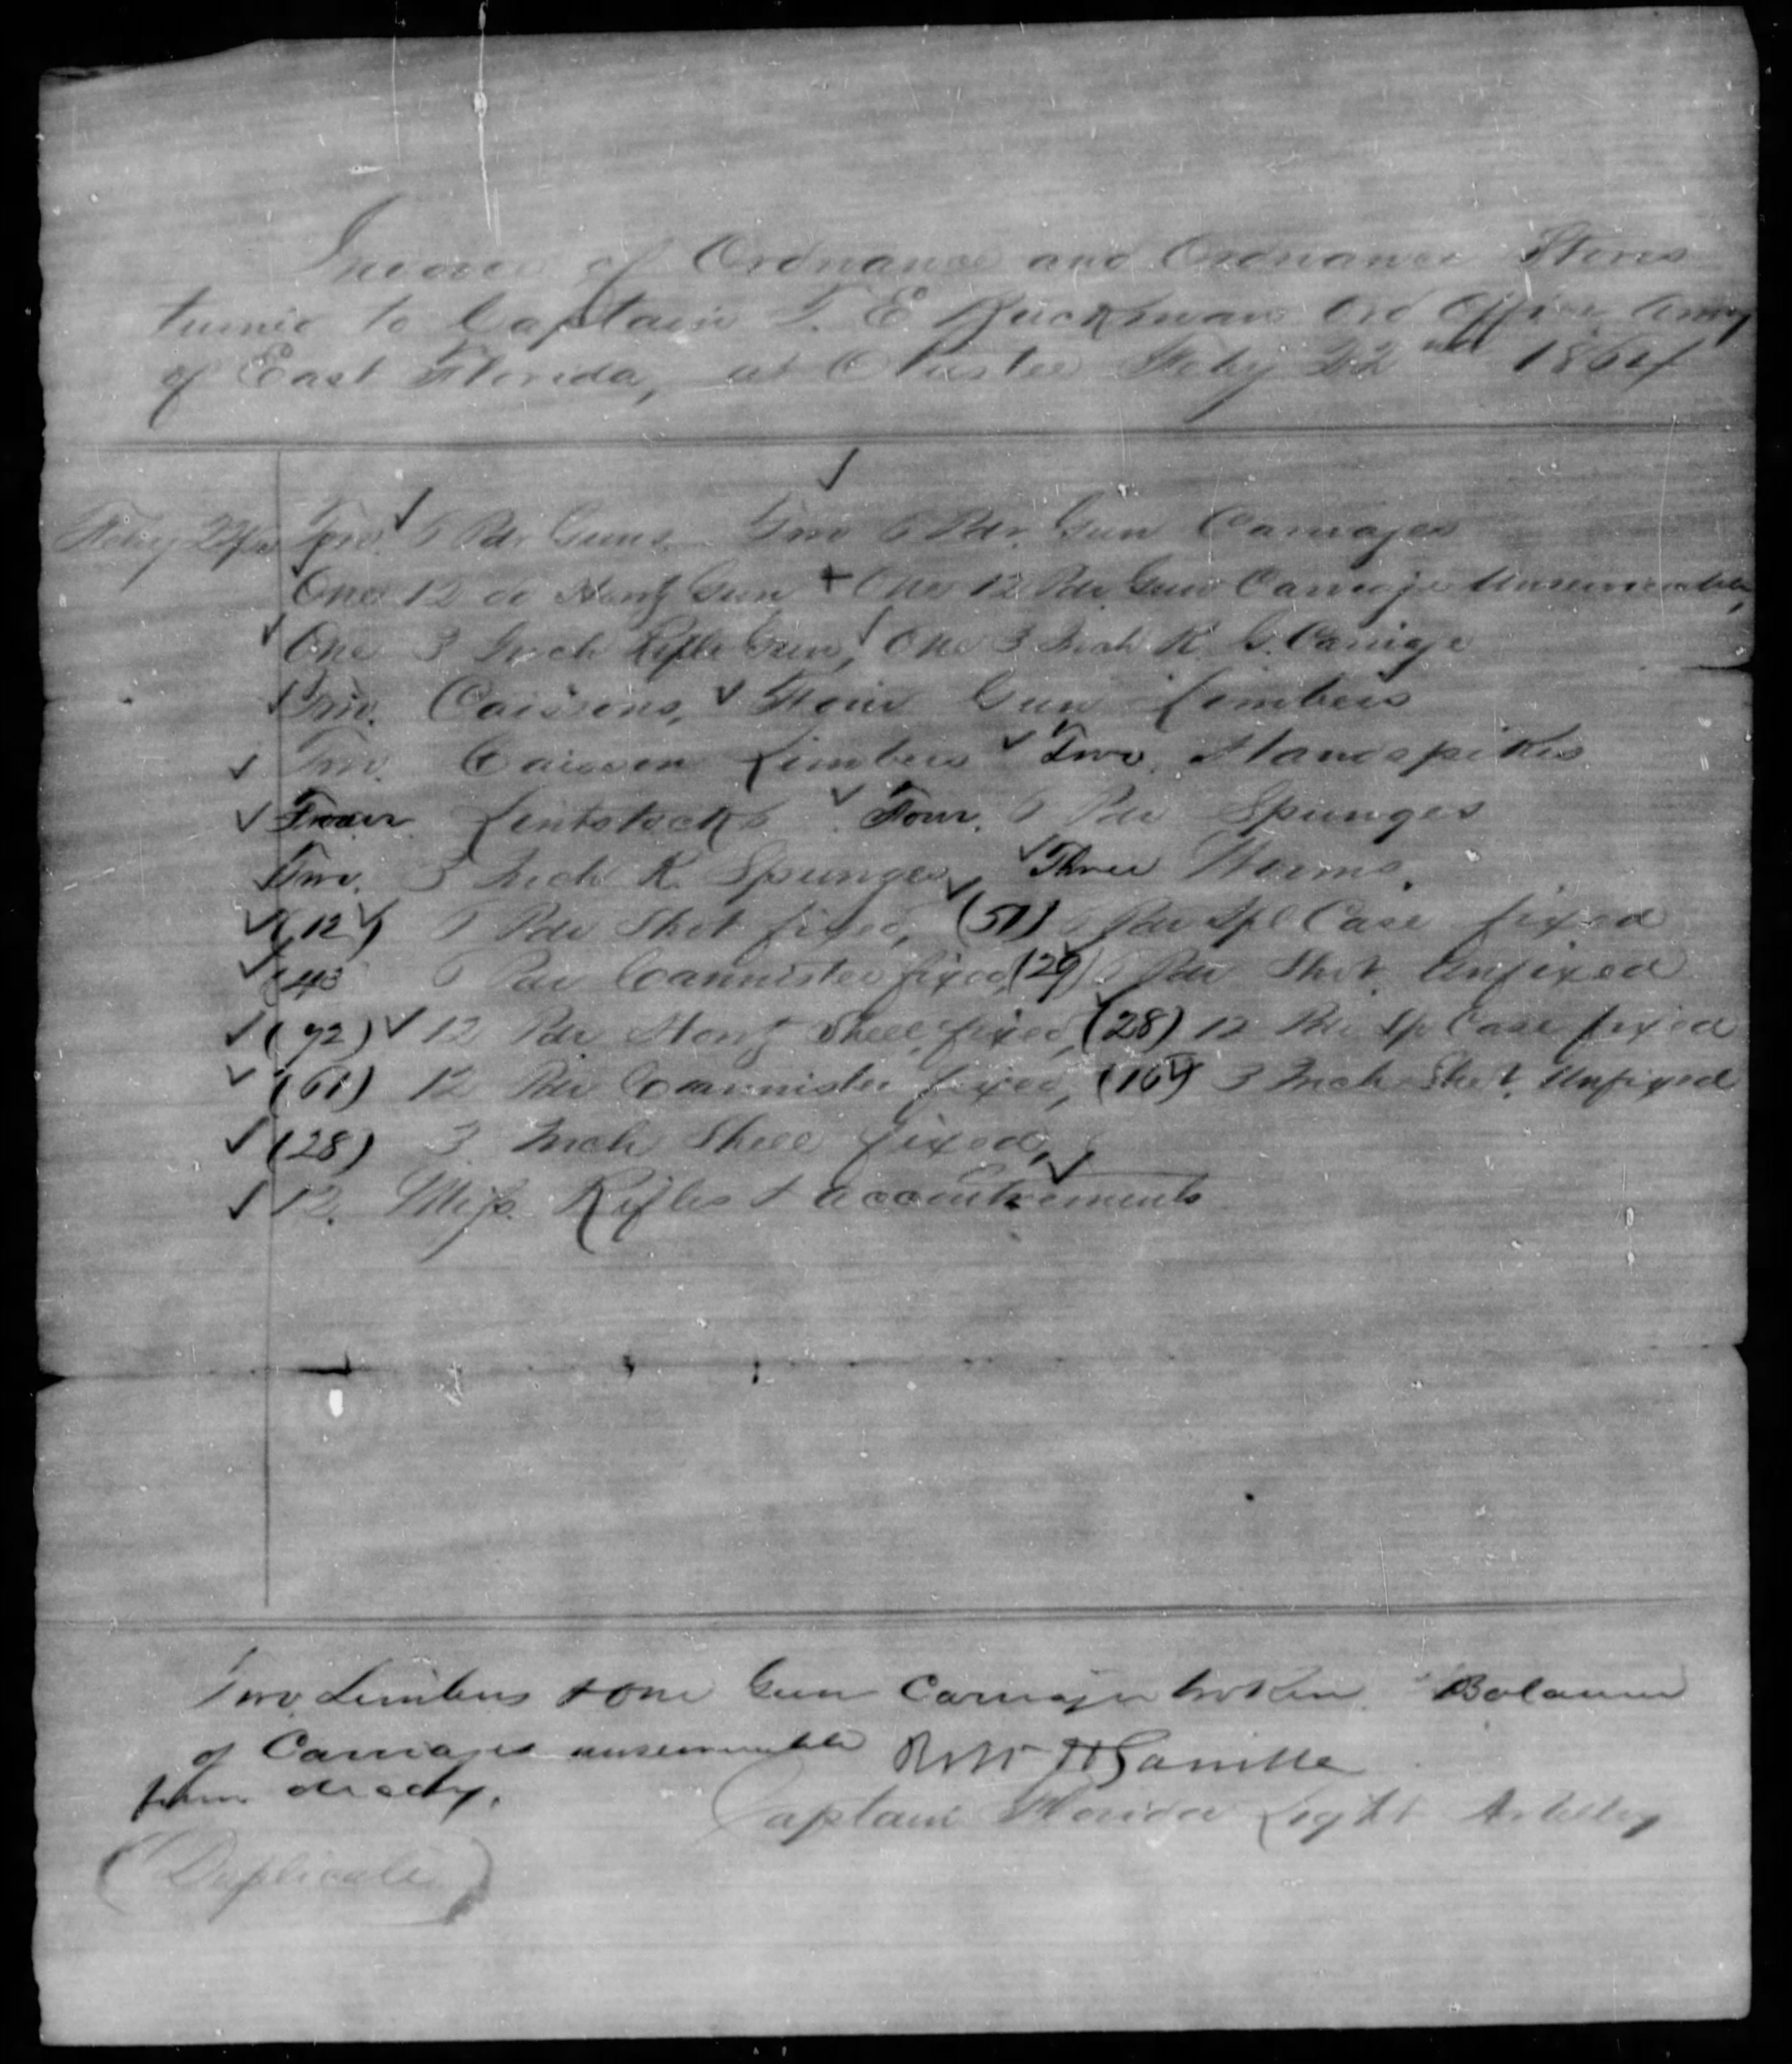 Invoice of Ordnance and Ordnance Stores
turned to Captain T. E. Buckman Ord Officer Army
of East Florida, at Olustee Feby 22nd 1864
Feby 22nd Two 6 Pdr Guns Two 6 Pdr. Gun Carriages
One 12 do Howtz Gun + One 12 Pdr Gun Carriage Unserviceable,
One 3 Inch Rifle Gun, One 3 Inch R. G. Carriage
Two. Caissons, Four Gun Limbers
Two. Caisson Limbers Two. Handspikes
Four Lintstocks Four. 6 Pdr Spunges
Two. 3 Inch R. Spunges, Three Worms.
(12) 6 Pdr Shot fixed, (51) 6 Pdr Spl Case fixed
(43 6 Pdr Cannister fixed (29) 6 Pdr Shot. Unfixed
(92) 12 Pdr Howtz Shell, fixed, (28) 12 Pdr Sp Case fixed
(61) 12 Pdr Cannister fixed, 3 Inch Shot, Unfixed
(28) 3 Inch Shell fixed,
12. Miss. Rifles & accoutrements
Two Limbers & one Gun Carriage broken Balance
of Carriages unserviceable Robt H Gamble
from decay.
Captain Florida Light Artillery
(Duplicate)